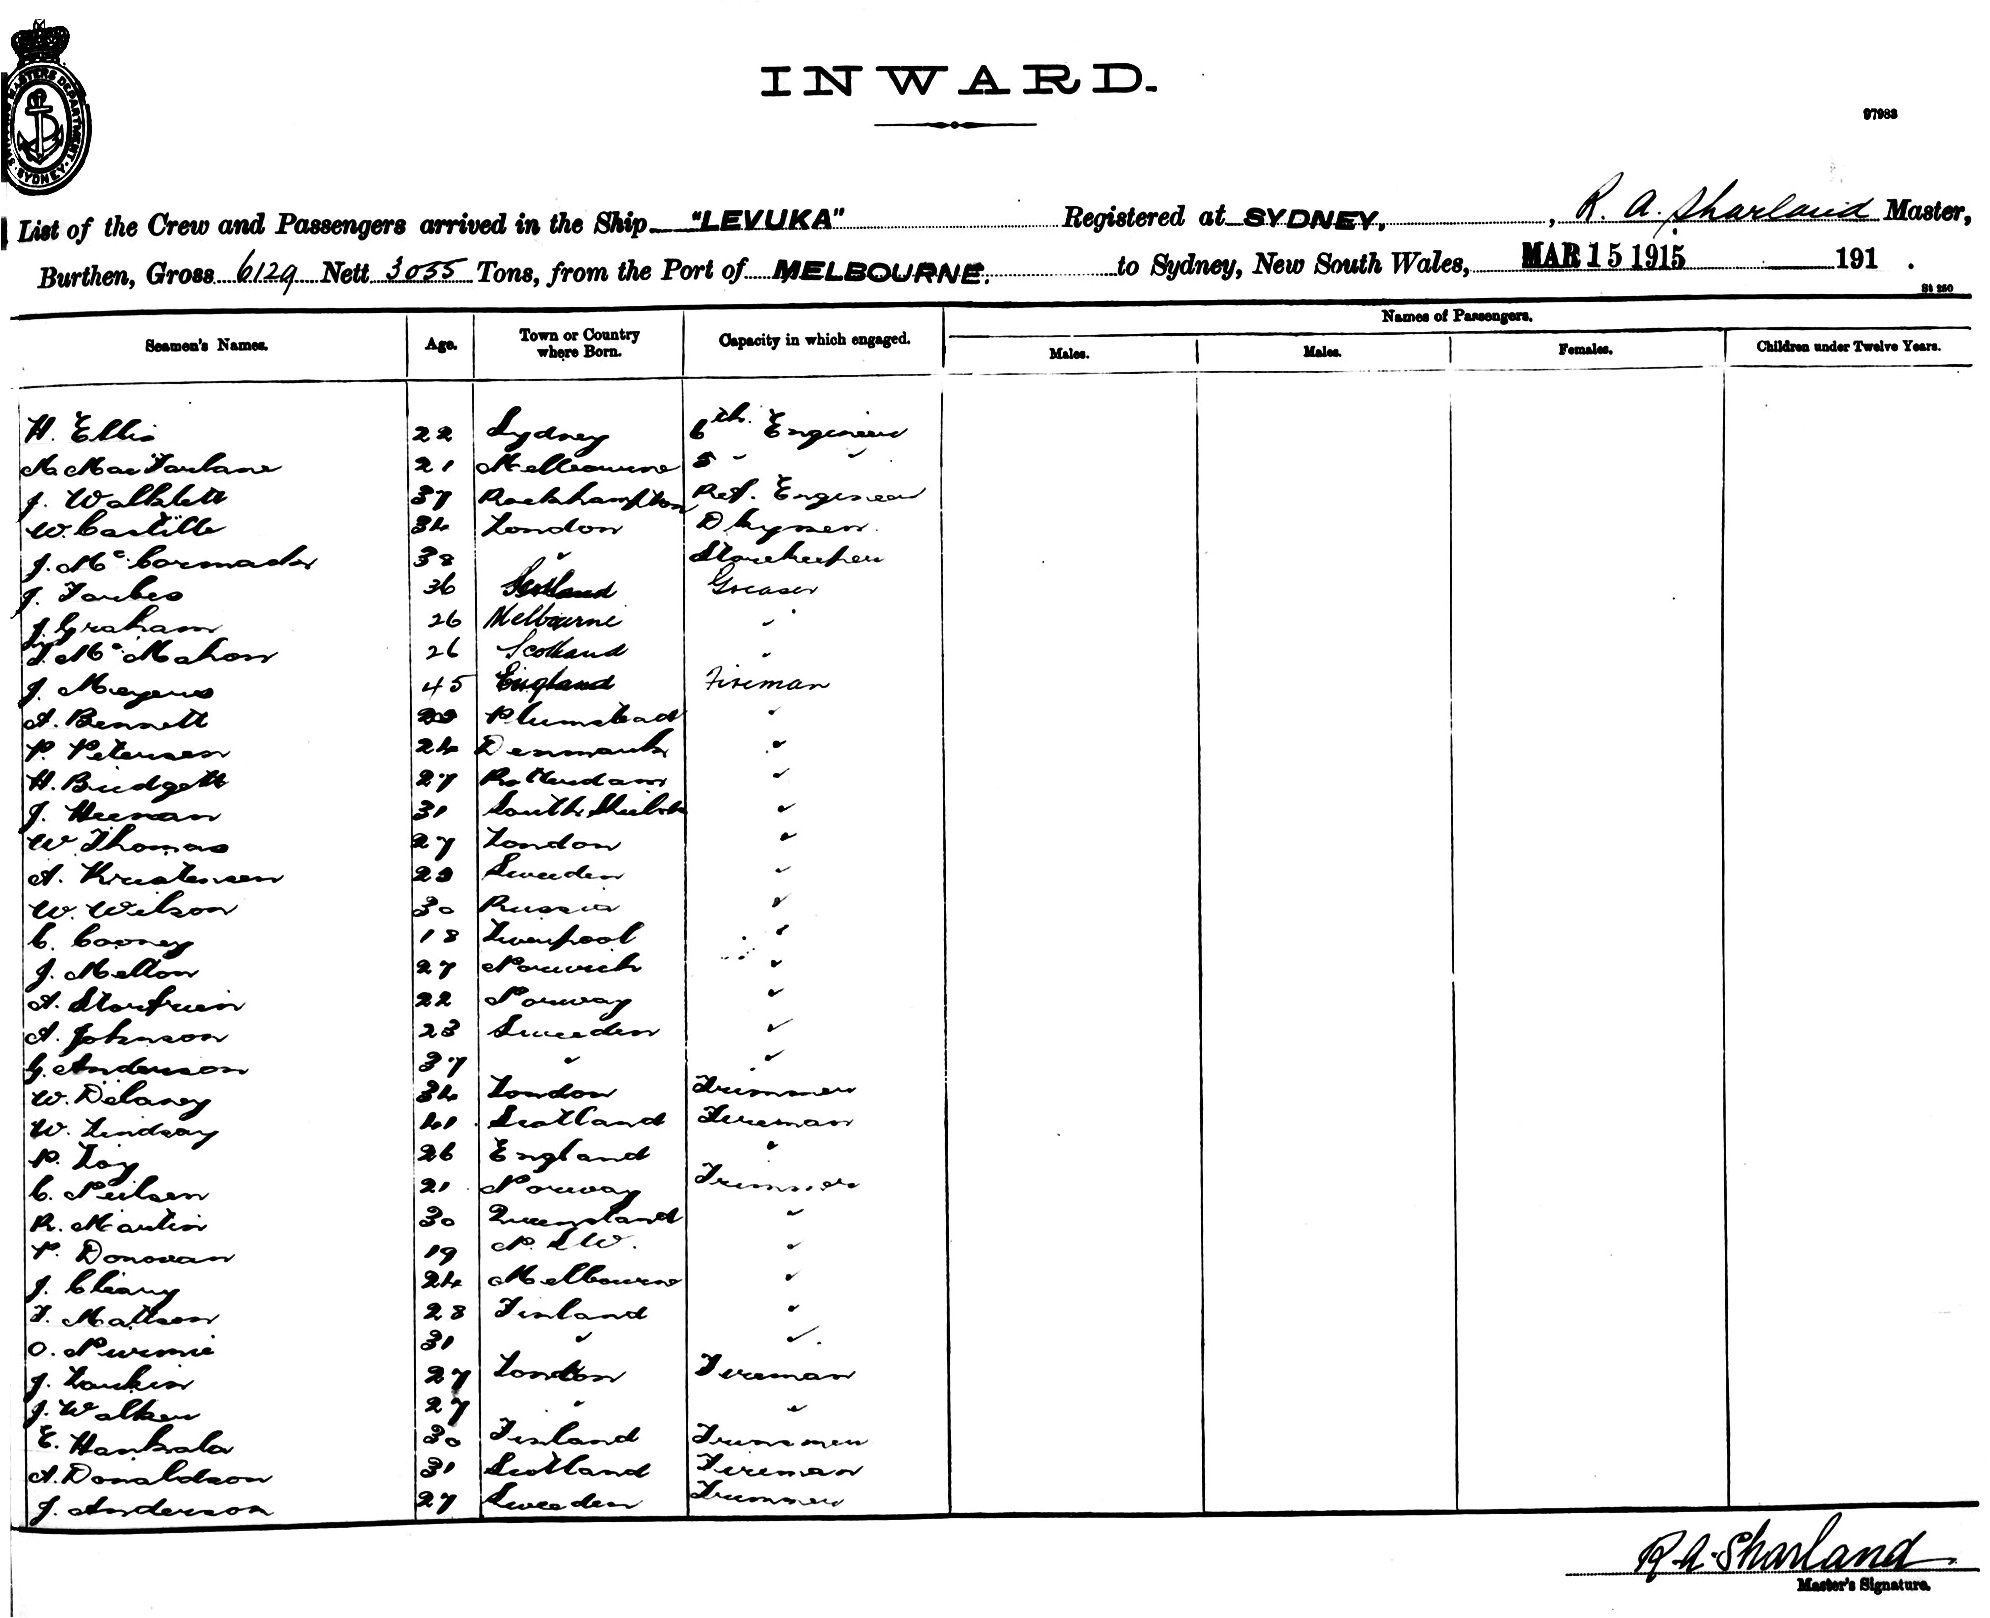 INWARD.
97983
SHIPPING MASTERS DEPARTMENT · SYDNEY ·
List of the Crew and Passengers arrived in the Ship "LEVUKA" Registered at SYDNEY, , R. A. Sharland Master,
Burthen, Gross 6129 Nett 3035 Tons, from the Port of MELBOURNE. to Sydney, New South Wales, MAR 15 1915 191 .
St 250
Seamen's Names. Age. Town or Country where Born. Capacity in which engaged. Names of Passengers.
Males. Males. Females. Children under Twelve Years.
H. Ellis 22 Sydney 6th. Engineer
M. MacFarlane 21 Melbourne 8 " "
J. Walklett 37 Rockhampton Ref. Engineer
W. Castille 34 London Dkymen
J. McCormack 38 " Storekeeper
J. Forbes 36 Scotland Greaser
J. Graham 26 Melbourne "
T. McMahon 26 Scotland "
J. Meyers 45 England Fireman
A. Bennett Plumstead "
P. Petersen 24 Denmark "
H. Bridgett 27 Rotterdam "
J. Heenan 31 South Shields "
W. Thomas 27 London "
A. Kristensen 29 Sweeden "
W. Wilson 30 Russia "
C. Cooney 18 Liverpool "
J. Melton 27 Norwich "
A. 22 Norway "
A. Johnson 23 Sweeden "
G. Anderson 37 " "
W. Delaney 34 London Trimmer
W. Lindsay 41 Scotland Fireman
P. Loy 26 England "
C. Neilsen 21 Norway Trimmer
R. Martin 30 Queensland "
P. Donovan 19 N.S.W. "
J. Cleary 24 Melbourne "
F. Mattson 28 Finland "
O. Nurmie 31 " "
J. Larkin 27 London Fireman
J. Walker 27 " "
E. Hankala 30 Finland Trimmer
A. Donaldson 31 Scotland Fireman
J. Anderson 27 Sweeden Trimmer
R. A. Sharland
Master's Signature.